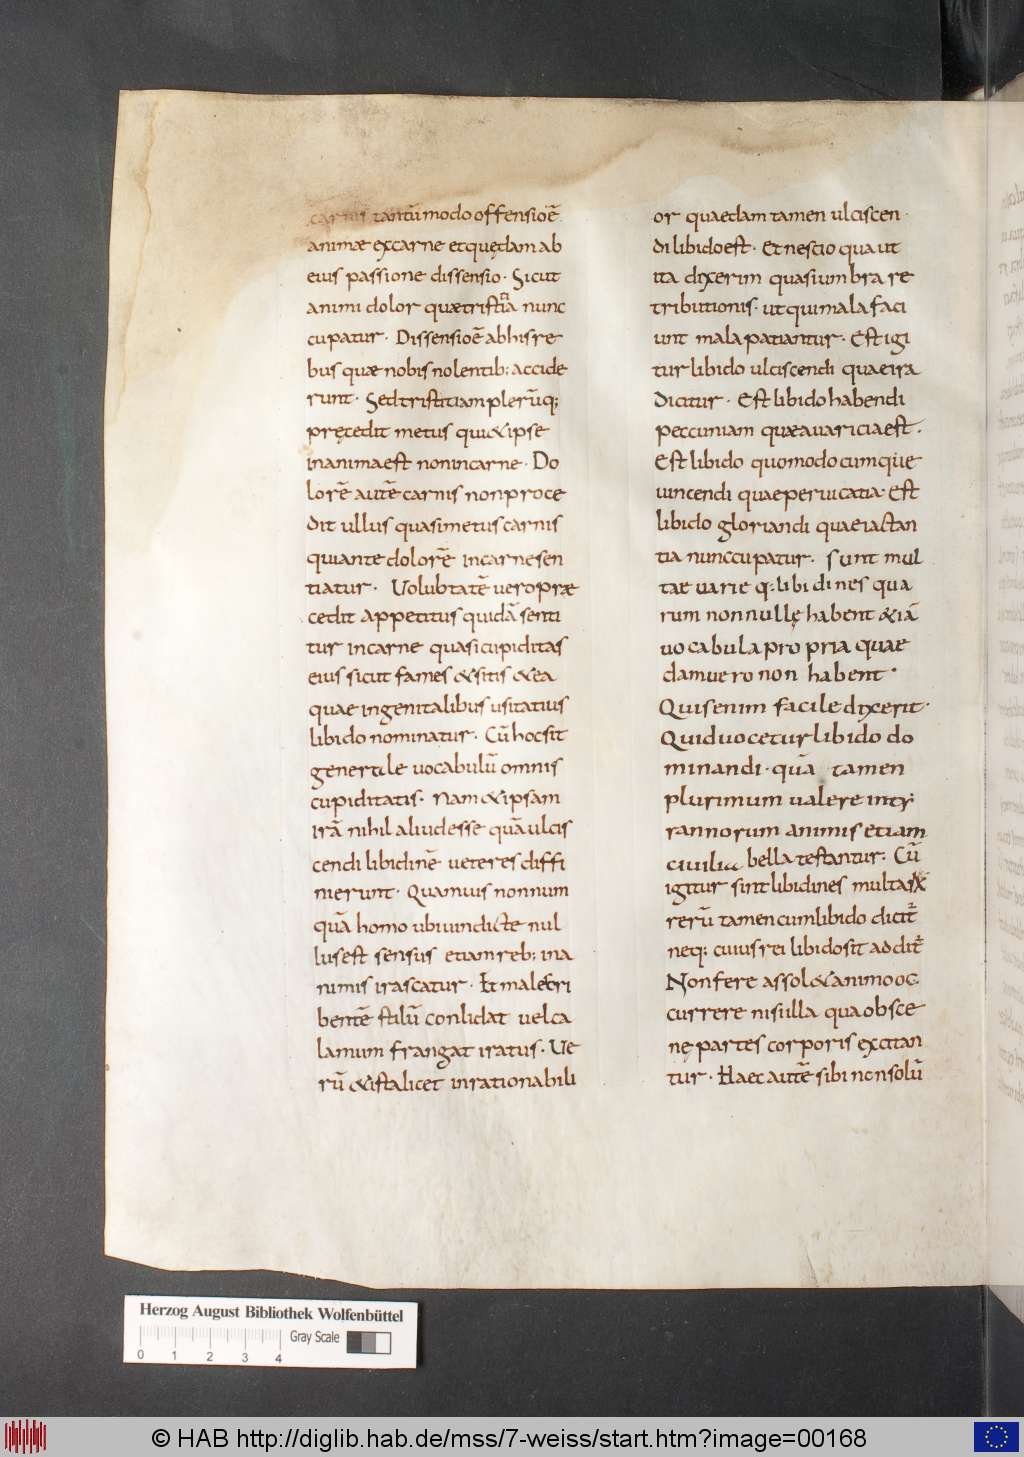 carnis tantū modo offensioē
animæ ex carne et quędam ab
eius passione dissensio · Sicut
animi dolor quætristiã nunc
cupatur · Dissensioē ab his re
bus quæ nobis nolentib; accide
runt · Sed tristitiam plerūq;
pręcedit metus qui & ipse
in anima est non in carne · Do
lorē autē carnis non proce
dit ullus quasi metus carnis
qui ante dolorē in carne sen
tiatur · Volubtatē vero præ
cedit appetitus quidā senti
tur in carne quasi cupiditas
eius sicut fames & sitis & ea
quae in genitalibus usitatius
libido nominatur · Cū hoc sit
generale vocabulū omnis
cupiditatis · Nam & ipsam
irā nihil aliud esse quā ulcis
cendi libidinē veteres diffi
nierunt · Quamuis nonnum
quā homo ubi uindicte nul
lus est sensus etiam reb; ina
nimis irascatur · Et male scri
bentē stilū conlidat uel ca
lamum frangat iratus · Ve
rū & ista licet inrationabili
or quaedam tamen ulciscen
di libido est · Et nescio qua ut
ita dixerim quasi umbra re
tributionis · ut qui mala faci
unt mala patiantur · Est igi
tur libido ulciscendi quae ira
dicitur · Est libido habendi
peccuniam quæ auaricia est ·
Est libido quomodocumque
uincendi quae peruicatia · Est
libido gloriandi quae iactan
tia nunccupatur · sunt mul
tae uarie q; libidines qua
rum nonnullę habent & iā
uocabula propria quae
dam uero non habent ·
Quis enim facile dixerit ·
Quid uocetur libido do
minandi · quā tamen
plurimum ualere in ty
rannorum animis etiam
ciuilia bella testantur · Cū
igitur sint libidines multa
rerū tamen cum libido dicit
neq; cuius rei libido sit addit
Non fere assol& animo oc
currere nisi illa qua obsce
nę partes corporis excitan
tur · Haec autē sibi non solū
Herzog August Bibliothek Wolfenbüttel
Gray Scale
0 1 2 3 4
© HAB http://diglib.hab.de/mss/7-weiss/start.htm?image=00168